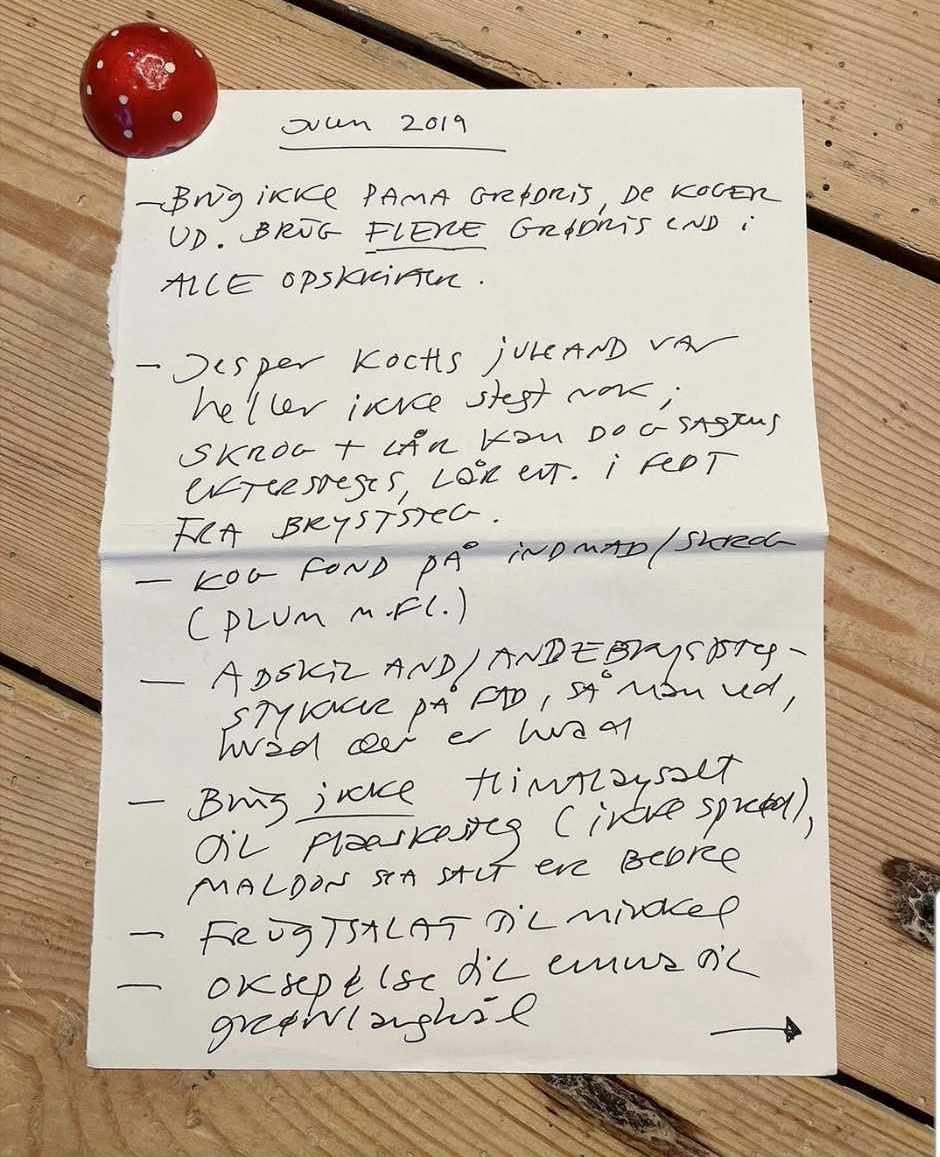 Julen 2019
- Brug ikke PAMA GRØDRIS, DE KOGER
UD. BRUG FLERE GRØDRIS END i
ALLE OPSKRIFTER.
- Jesper KOCHS juleAND VAR
heller ikke stegt nok;
SKROG + LÅR kan DOG SAGTENS
EFTERSTEGES, LÅR evt. i FEDT
FRA BRYSTSTEG.
- KOG FOND PÅ INDMAD/SKROG
(PLUM M.FL.)
- ADSKIL AND/ANDEBRYSTSTEG-
STYKKER PÅ FAD, SÅ man ved,
hvad der er hvad
- Brug ikke Himalaysalt
TIL Flæskesteg (ikke sprød),
MALDON SEA SALT ER BEDRE
- FRUGTSALAT TIL Mikkel
- Oksepølse TIL Emma TIL
grønlangkål